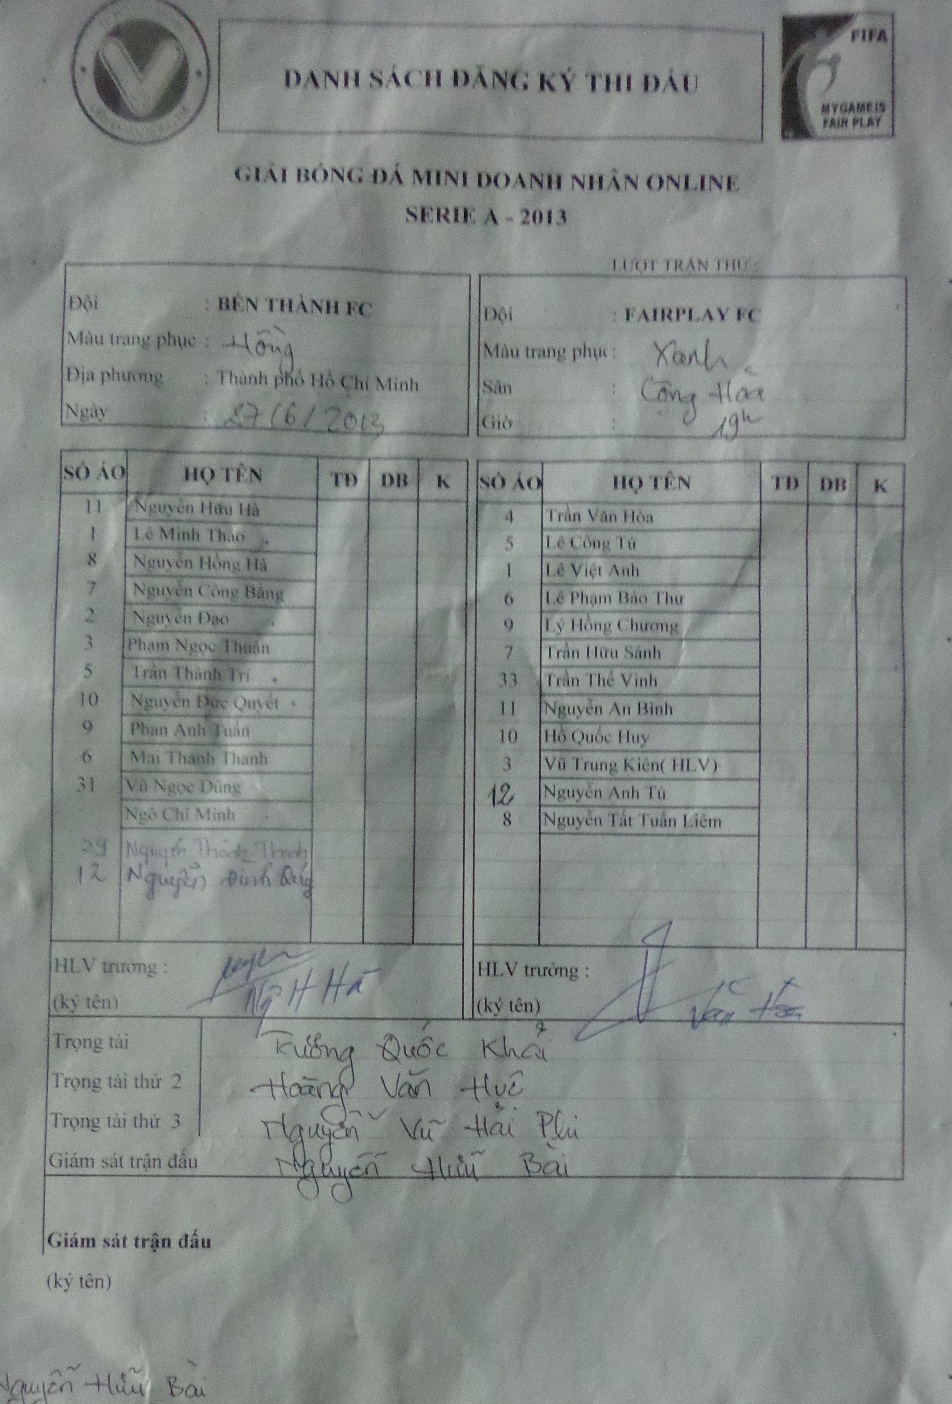 DANH SÁCH ĐĂNG KÝ THI ĐẤU
FIFA
MY GAME IS
FAIR PLAY
GIẢI BÓNG ĐÁ MINI DOANH NHÂN ONLINE
SERIE A - 2013
LƯỢT TRẬN THỨ :
Đội : BẾN THÀNH FC
Màu trang phục : Hồng
Địa phương : Thành phố Hồ Chí Minh
Ngày : 27/6/2013
Đội : FAIRPLAY FC
Màu trang phục : Xanh
Sân : Cộng Hòa
Giờ : 19h
SỐ ÁO HỌ TÊN TĐ DB K
11 Nguyễn Hữu Hà
1 Lê Minh Thảo
8 Nguyễn Hồng Hà
7 Nguyễn Công Bằng
2 Nguyễn Đạo
3 Phạm Ngọc Thuấn
5 Trần Thành Trí
10 Nguyễn Đức Quyết
9 Phan Anh Tuấn
6 Mai Thanh Thanh
31 Vũ Ngọc Dũng
Ngô Chí Minh
29 Nguyễn Thành Thanh
12 Nguyễn Đình Quý
SỐ ÁO HỌ TÊN TĐ DB K
4 Trần Văn Hòa
5 Lê Công Tú
1 Lê Việt Anh
6 Lê Phạm Bảo Thư
9 Lý Hồng Chương
7 Trần Hữu Sánh
33 Trần Thế Vinh
11 Nguyễn An Bình
10 Hồ Quốc Huy
3 Vũ Trung Kiên( HLV)
12 Nguyễn Anh Tú
8 Nguyễn Tất Tuấn Liêm
HLV trưởng :
(ký tên) Ng H Hà
HLV trưởng :
(ký tên) Văn Hòa
Trọng tài Trương Quốc Khải
Trọng tài thứ 2 Hoàng Văn Huê
Trọng tài thứ 3 Nguyễn Vũ Hải Phi
Giám sát trận đấu Nguyễn Hữu Bài
Giám sát trận đấu
(ký tên)
Nguyễn Hữu Bài